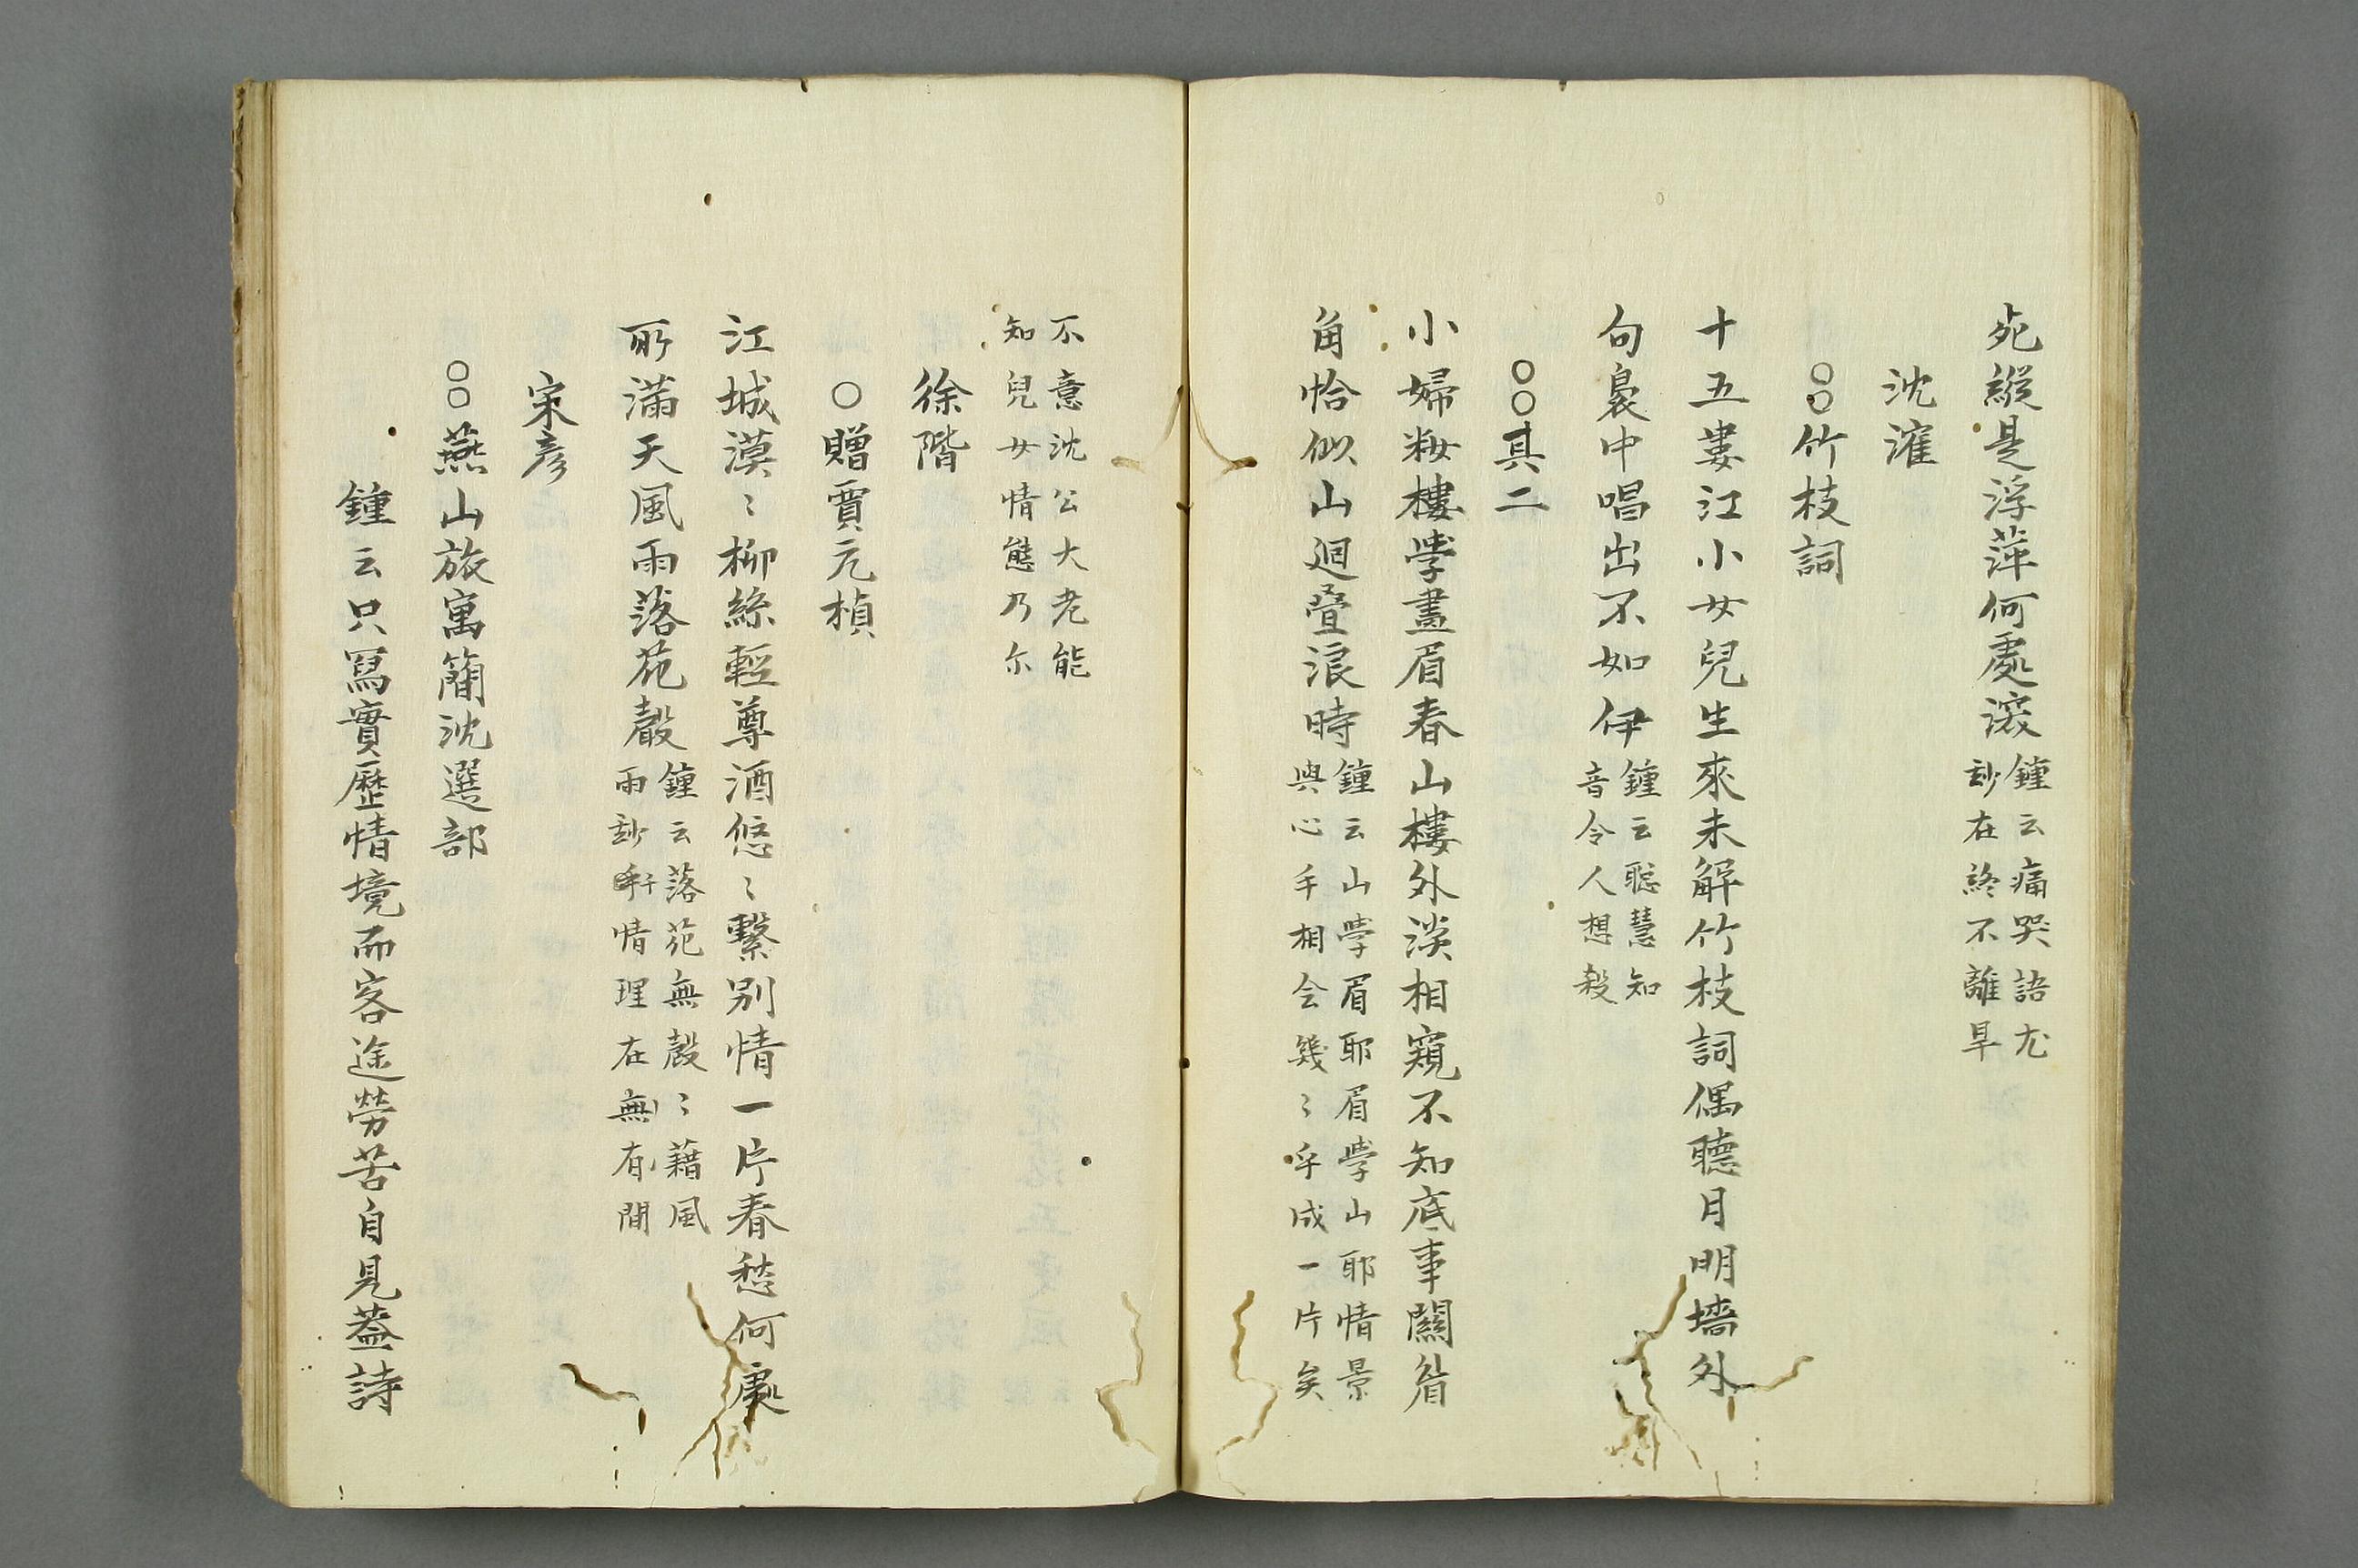 死縱是浮萍何處滚鍾云痛哭語尤
玅在終不離旱
沈㴶
○○竹枝詞
十五婁江小女兒生來未解竹枝詞偶聽月明墻外
句裊中唱出不如伊鍾云聡慧知
音令人想殺
○○其二
小婦粧樓學畫眉春山樓外淡相窺不知底事關眉
角恰似山迴疊浪時鍾云山學眉耶眉學山耶情景
與心手相会幾〻乎成一片矣
不意沈公大老能
知兒女情態乃尔
徐階
○贈賈元楨
江城漠〻柳絲輕尊酒悠〻繫别情一片春愁何處
所滿天風雨落花聲鍾云落花無聲〻藉風
雨玅手情理在無有間
宋彦
○○燕山旅寓簡沈選部
鍾云只寫實歷情境而客途勞苦自見葢詩